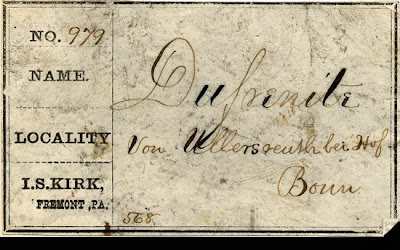 NO. 979
NAME.
Dufrenite
LOCALITY
Von Ullersreuth bei Hof
Bonn
I.S.KIRK,
FREMONT, PA.
568